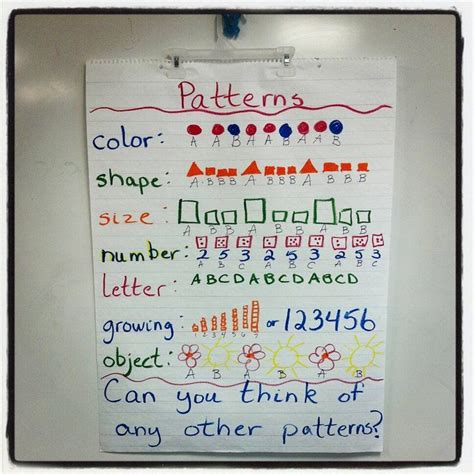 Patterns
color:
A A B A A B A A B
shape:
A B B B A B B B A B B B
size:
A B B A B B A B B
number: 2 5 3 2 5 3 2 5 3
A B C A B C A B C
letter: ABCDABCDABCD
growing: 1 2 3 4 5 6 7 or 123456
object:
A B A B A B
Can you think of
any other patterns?